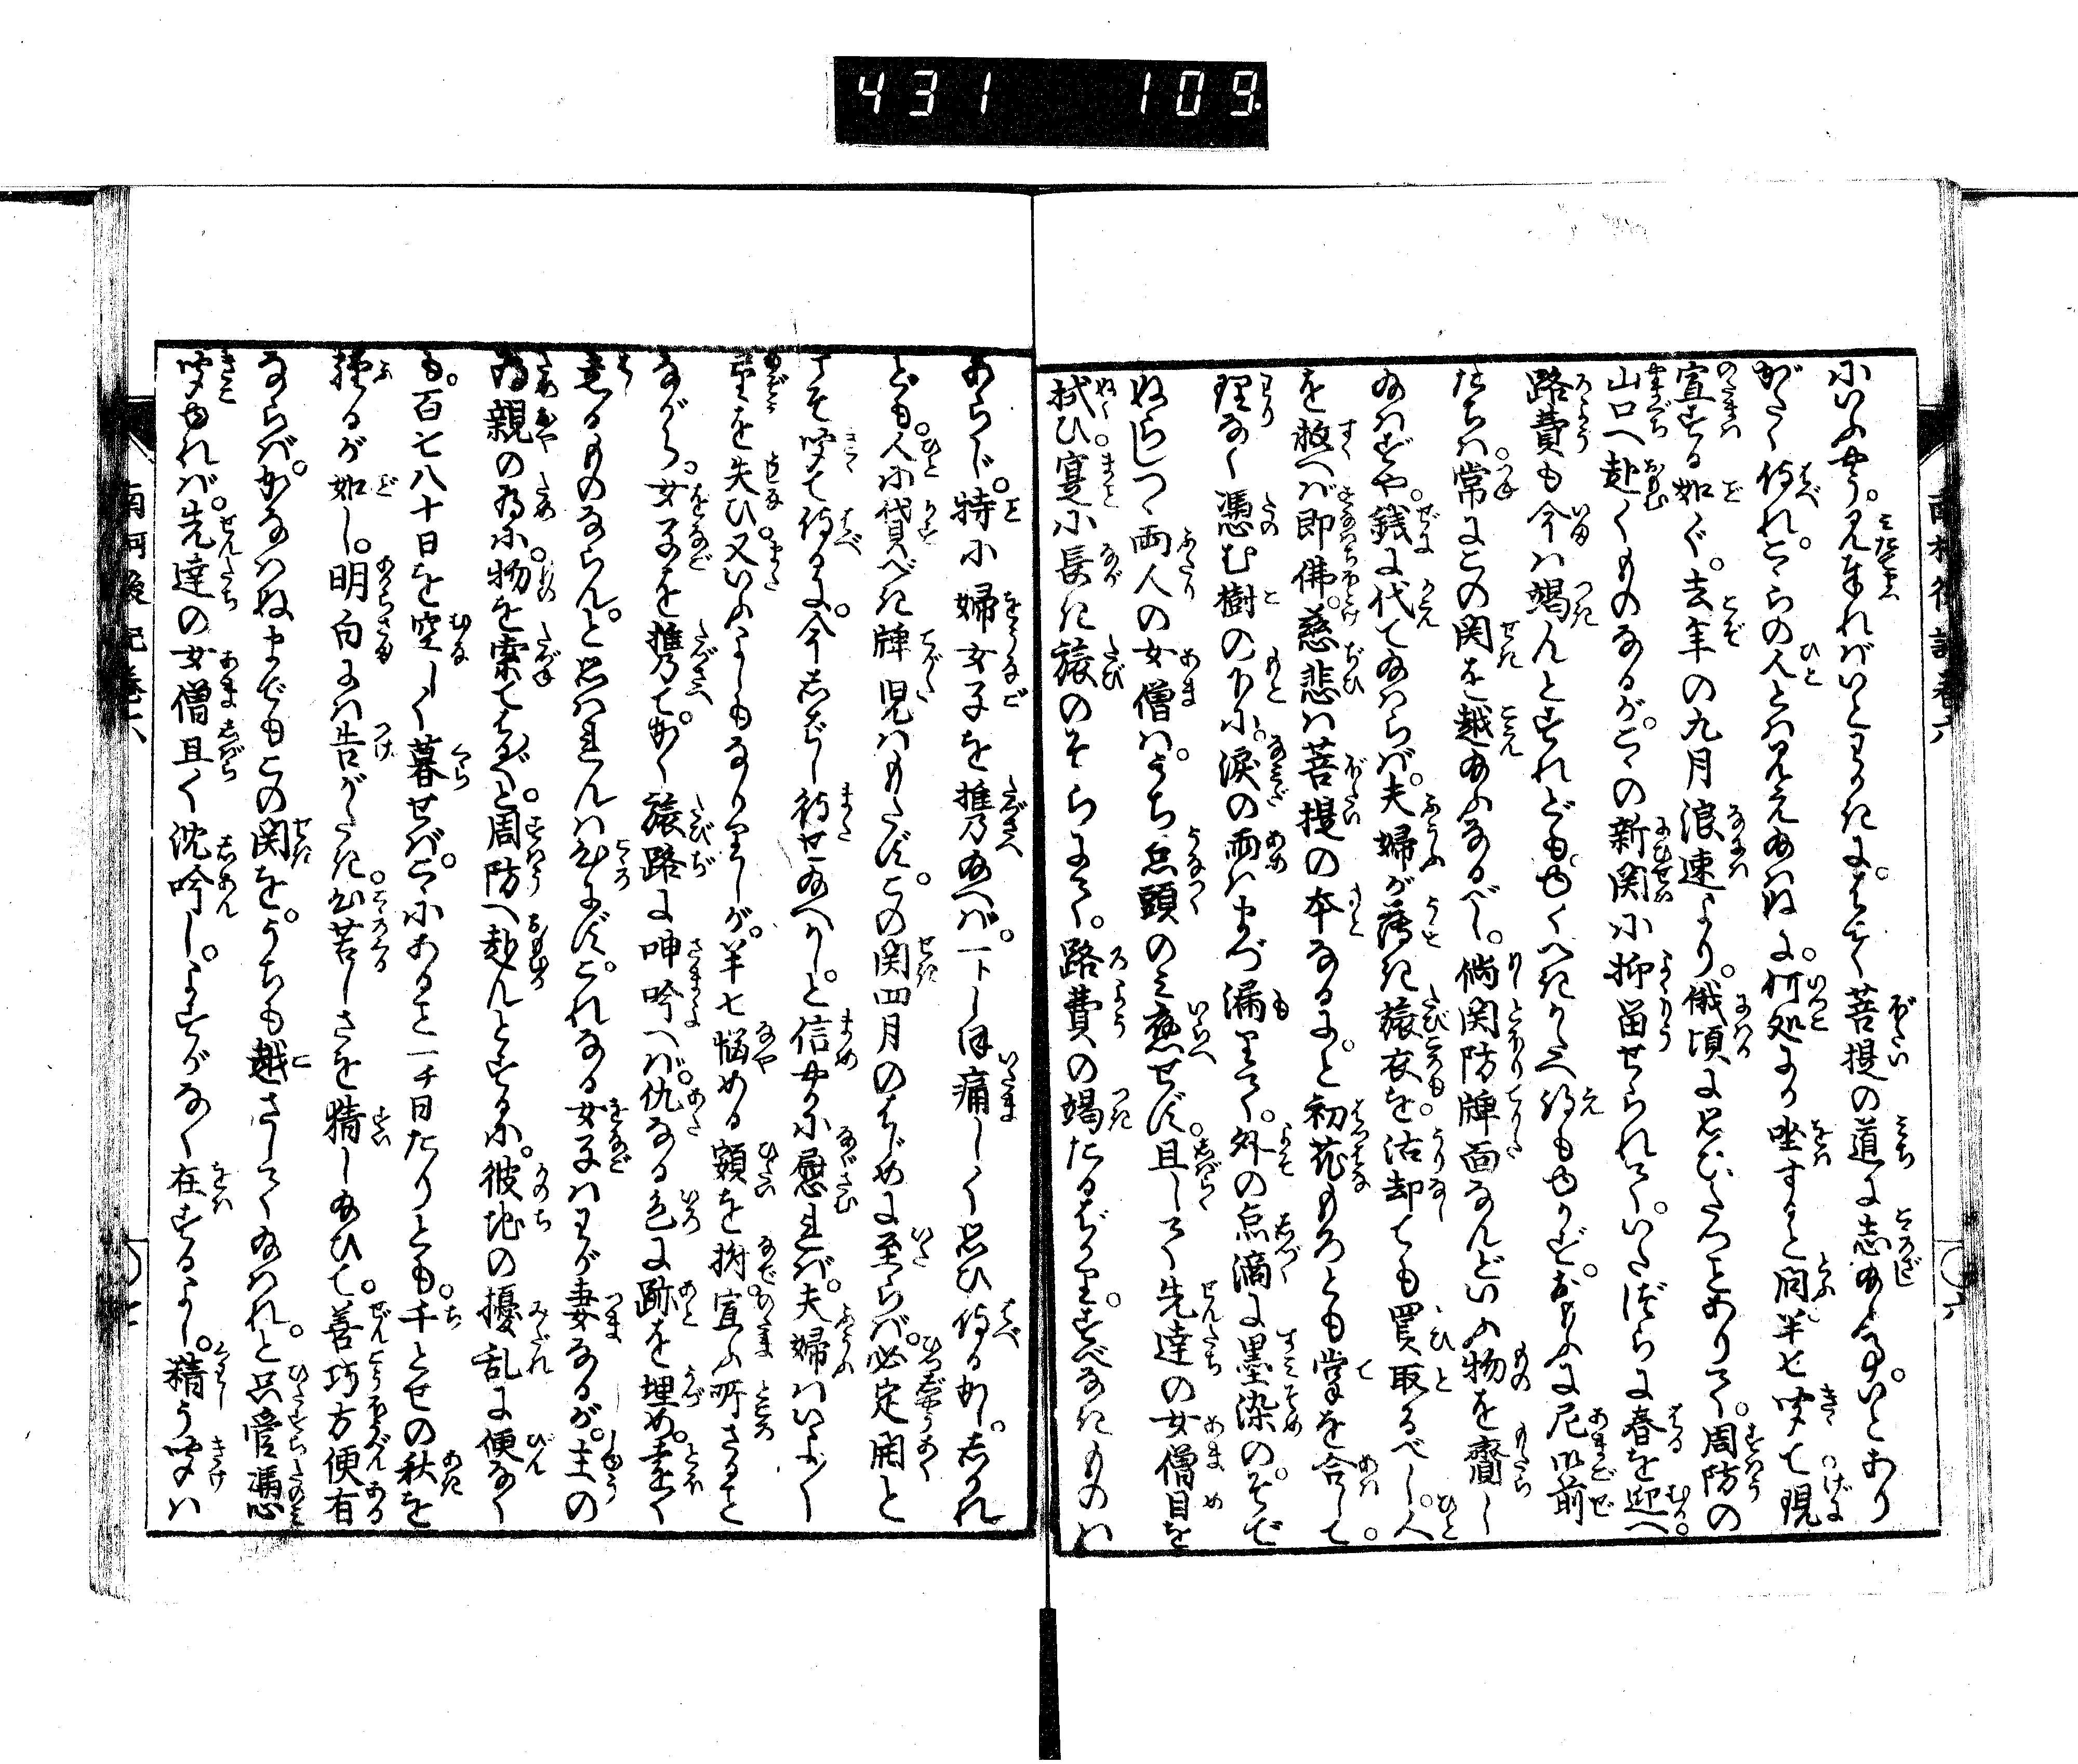 431 109
にいふやう。見奉ればいとわかきに。はやく菩提の道に志給ふ事。いとあり
がたく侍れ。こゝらの人とは見え給はぬに。何処にか坐すると問。半七聞て現
宣する如く。去年の九月浪速より。俄頃に思ひたつことありて。周防の
山口へ赴くものなるが。こゝの新関に抑留せられて。いたづらに春を迎へ。
路費も今は竭んとすれども。ゆくべきかたへ得もゆかず。おもふに尼御前
たちは。常にこの関を越給ふなるべし。倘関防牌面なんどいふ物を齎し
給はずや。銭に代て給はらば。夫婦が薄き旅衣を。沽却ても買取るべし。人
を救へば即佛。慈悲は菩提の本なるに。と初花もろとも掌を合して。
理なく憑む樹の下に。涙の雨はまづ漏りて。外の点滴に墨染の。そで
ぬらしつゝ両人の女僧は。うち点頭のみ應せず。且して先達の女僧目を
拭ひ。寔に長き旅のそらにて。路費の竭たるばかり。すべなきものは
あらじ。特に婦女子を携給へば。一トしほ痛しく思ひ侍るかし。しかれ
ども。人に貸べき牌児はもたず。この関四月のはじめに至らば。必定開と
こそ聞て侍るに。今しばし待せ給へかし。と信やかに慰れば。夫婦はいよ／＼
望を失ひ。又いふよしもなかりしが。半七悩める額を拊。宣ふ所さること
ながら。女子を携て。かく旅路に呻吟へば。仇なる色に跡を埋め。走るく
走るものならんと思はれんは心よからず。これなる女子はわが妻なるが。主の
為親の為に。物を索てはる／＼と。周防へ赴んとするに。彼地の擾乱に便なく
も。百七八十日を空しく暮せば。こゝにあること一チ日たりとも。千とせの秋を
経るが如し。明白には告がたき心苦しさを猜し給ひて。善巧方便有
ならば。かなはぬまでもこの関を。うちも越さしてくだされ。と只管憑
聞ゆれば。先達の女僧且く沈吟し。よすがなく在するよし。精う聞けば